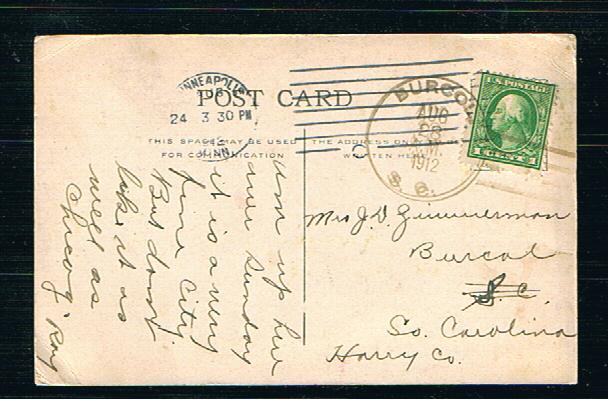 MINNEAPOLIS
AUG
24 3 30 PM
MINN.
POST CARD
THIS SPACE MAY BE USED
FOR COMMUNICATION
THE ADDRESS ON
WRITTEN HERE
BURCOL
AUG
28
A.M.
1912
S. C.
U.S. POSTAGE
1 CENT 1
am up here
over Sunday
it is a very
fine City
But don't
like it as
well as
Chicag
Ray
Mrs J. D. Zimmerman
Burcal
S. C.
So. Carolina
Harry Co.